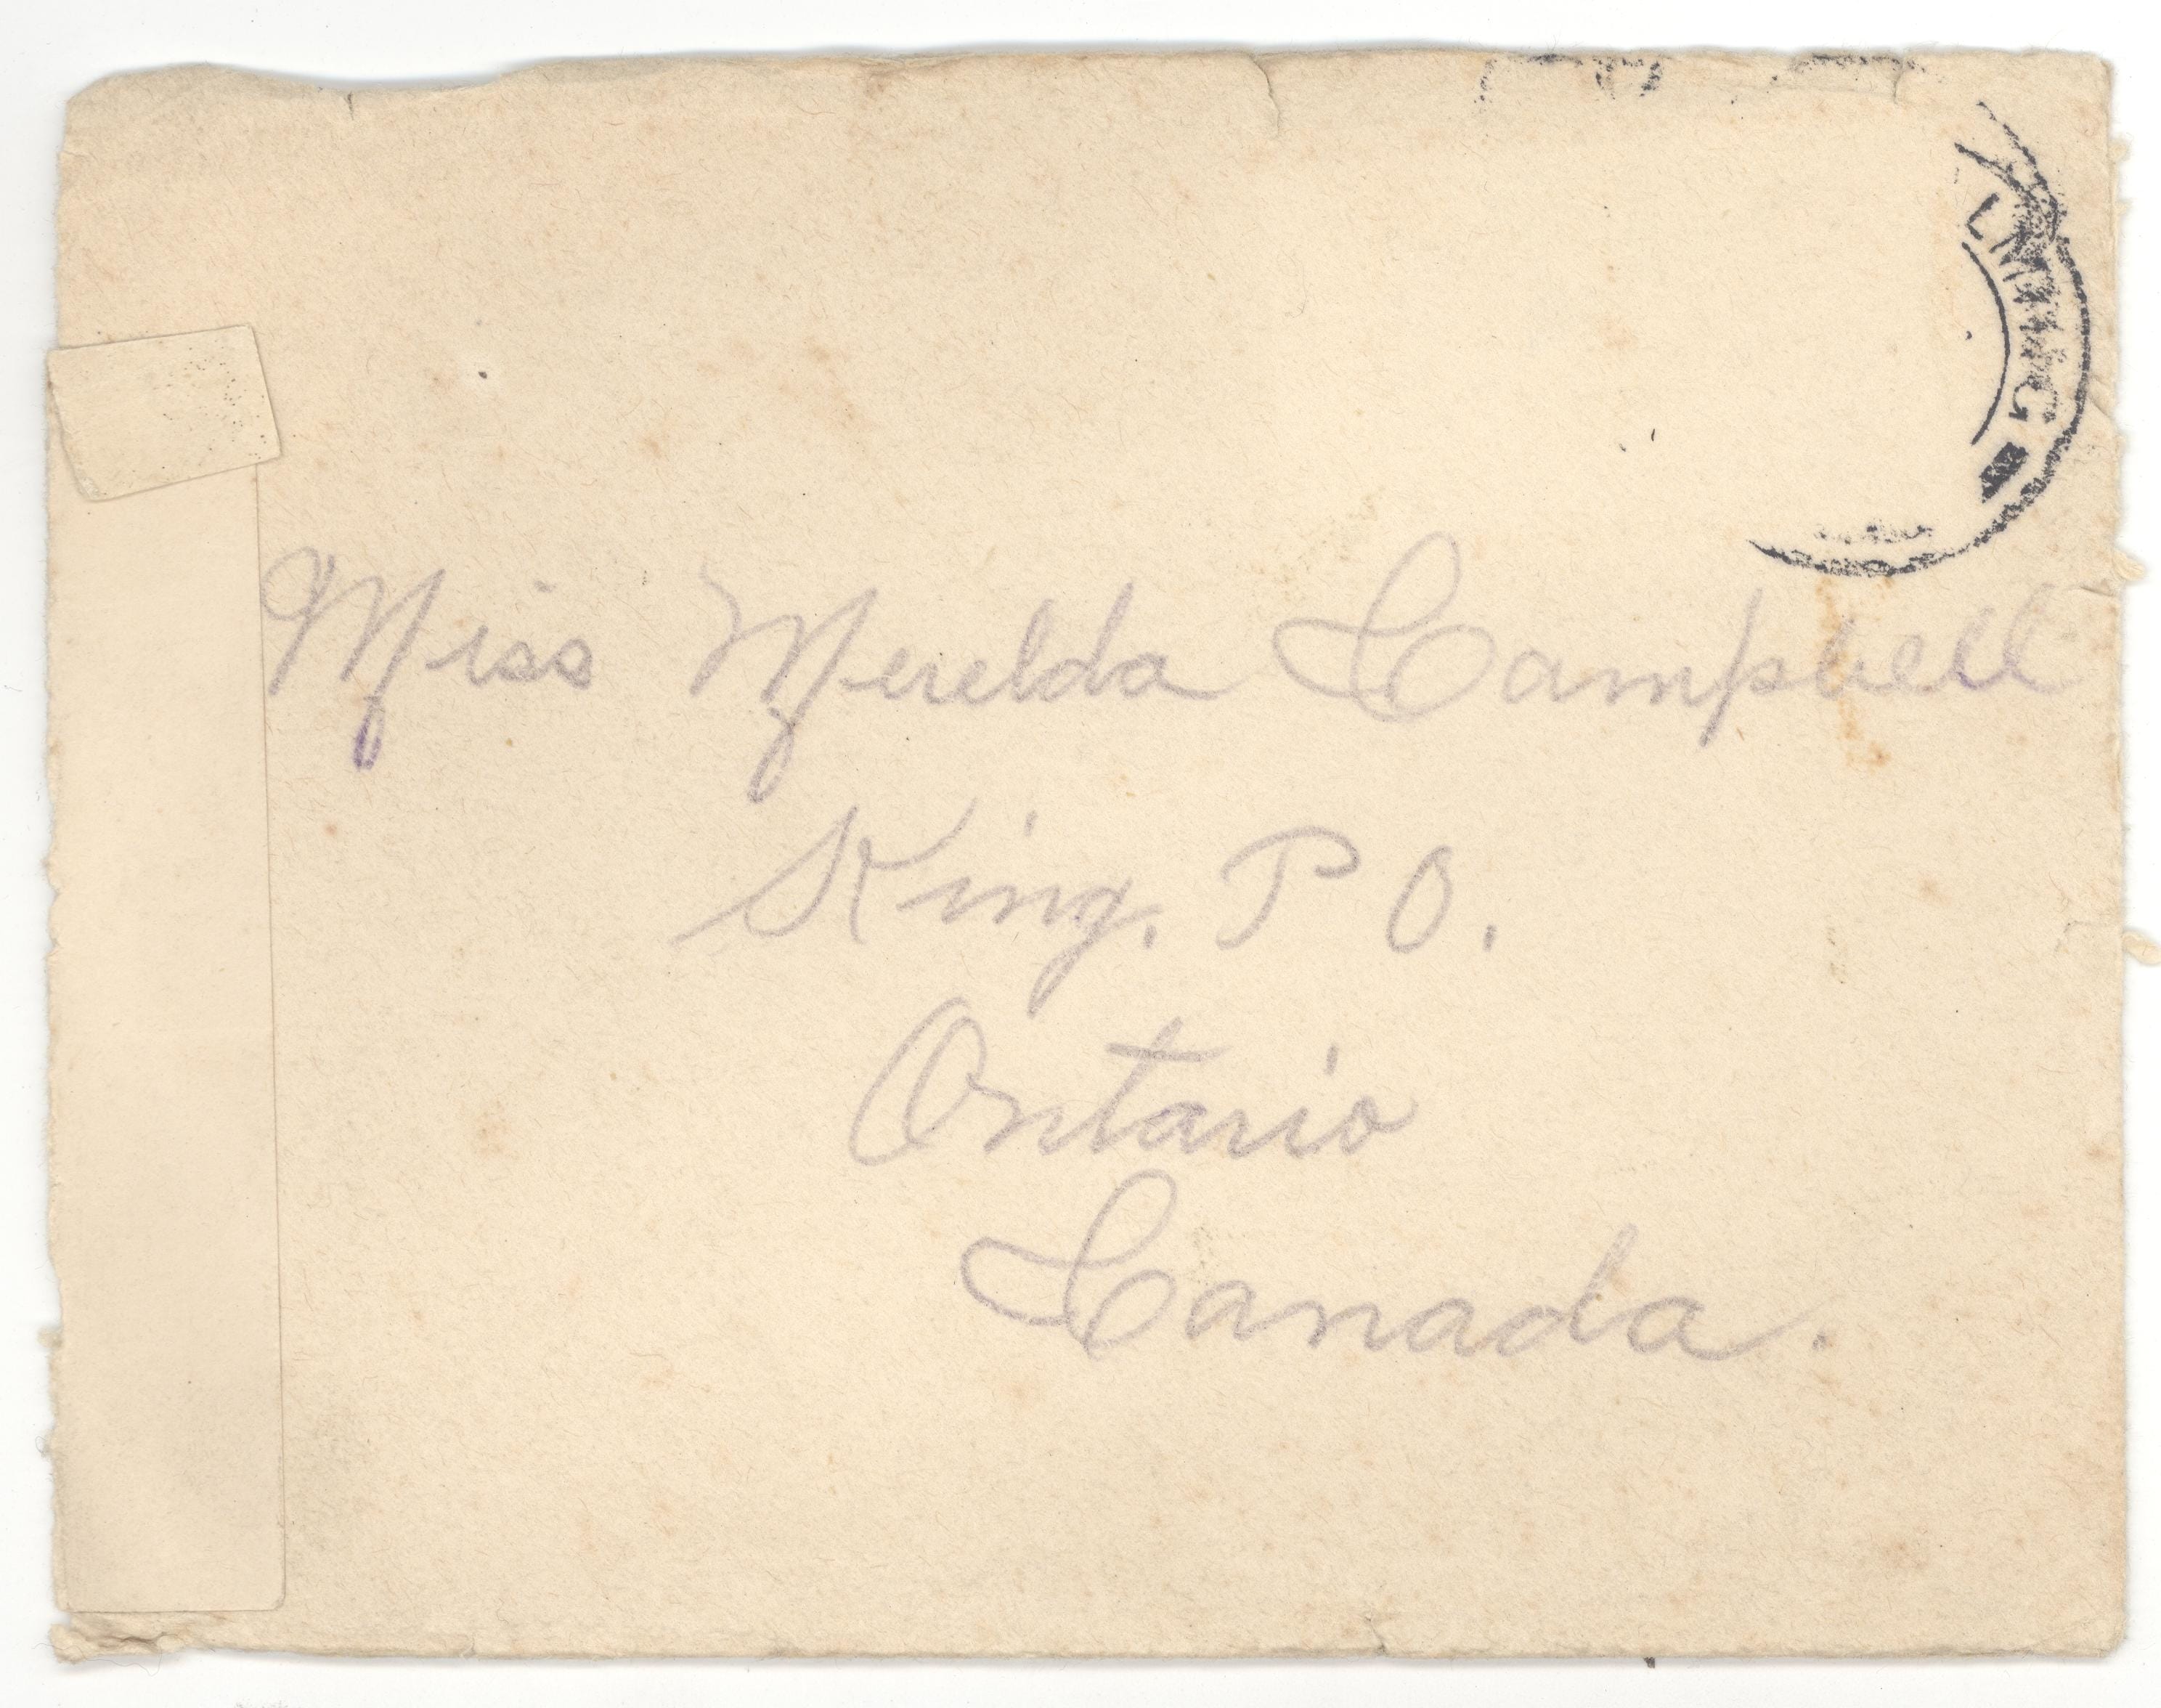 Miss Merelda Campbell
King. P O.
Ontario
Canada.